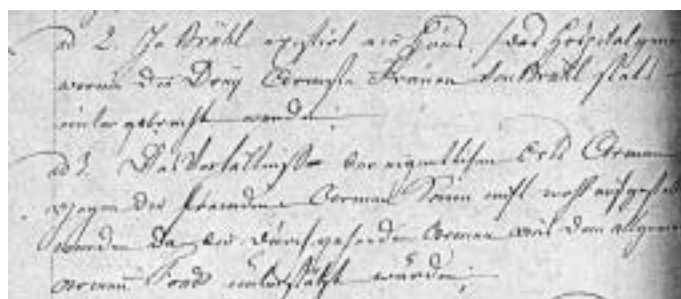 ad 2. In Brühl existirt ein Haus, /das Hospital gena
worin die Drey Ärmste Frauen von Brühl stats
untergebracht werden;
ad 3. Das Verhältniß der eigentlichen Orts Armen
gegen die fremden Armen kann nicht wohl aufgestel
werden da die durchgehende Armen aus dem allgem
Armen Fond unterstützt würden;